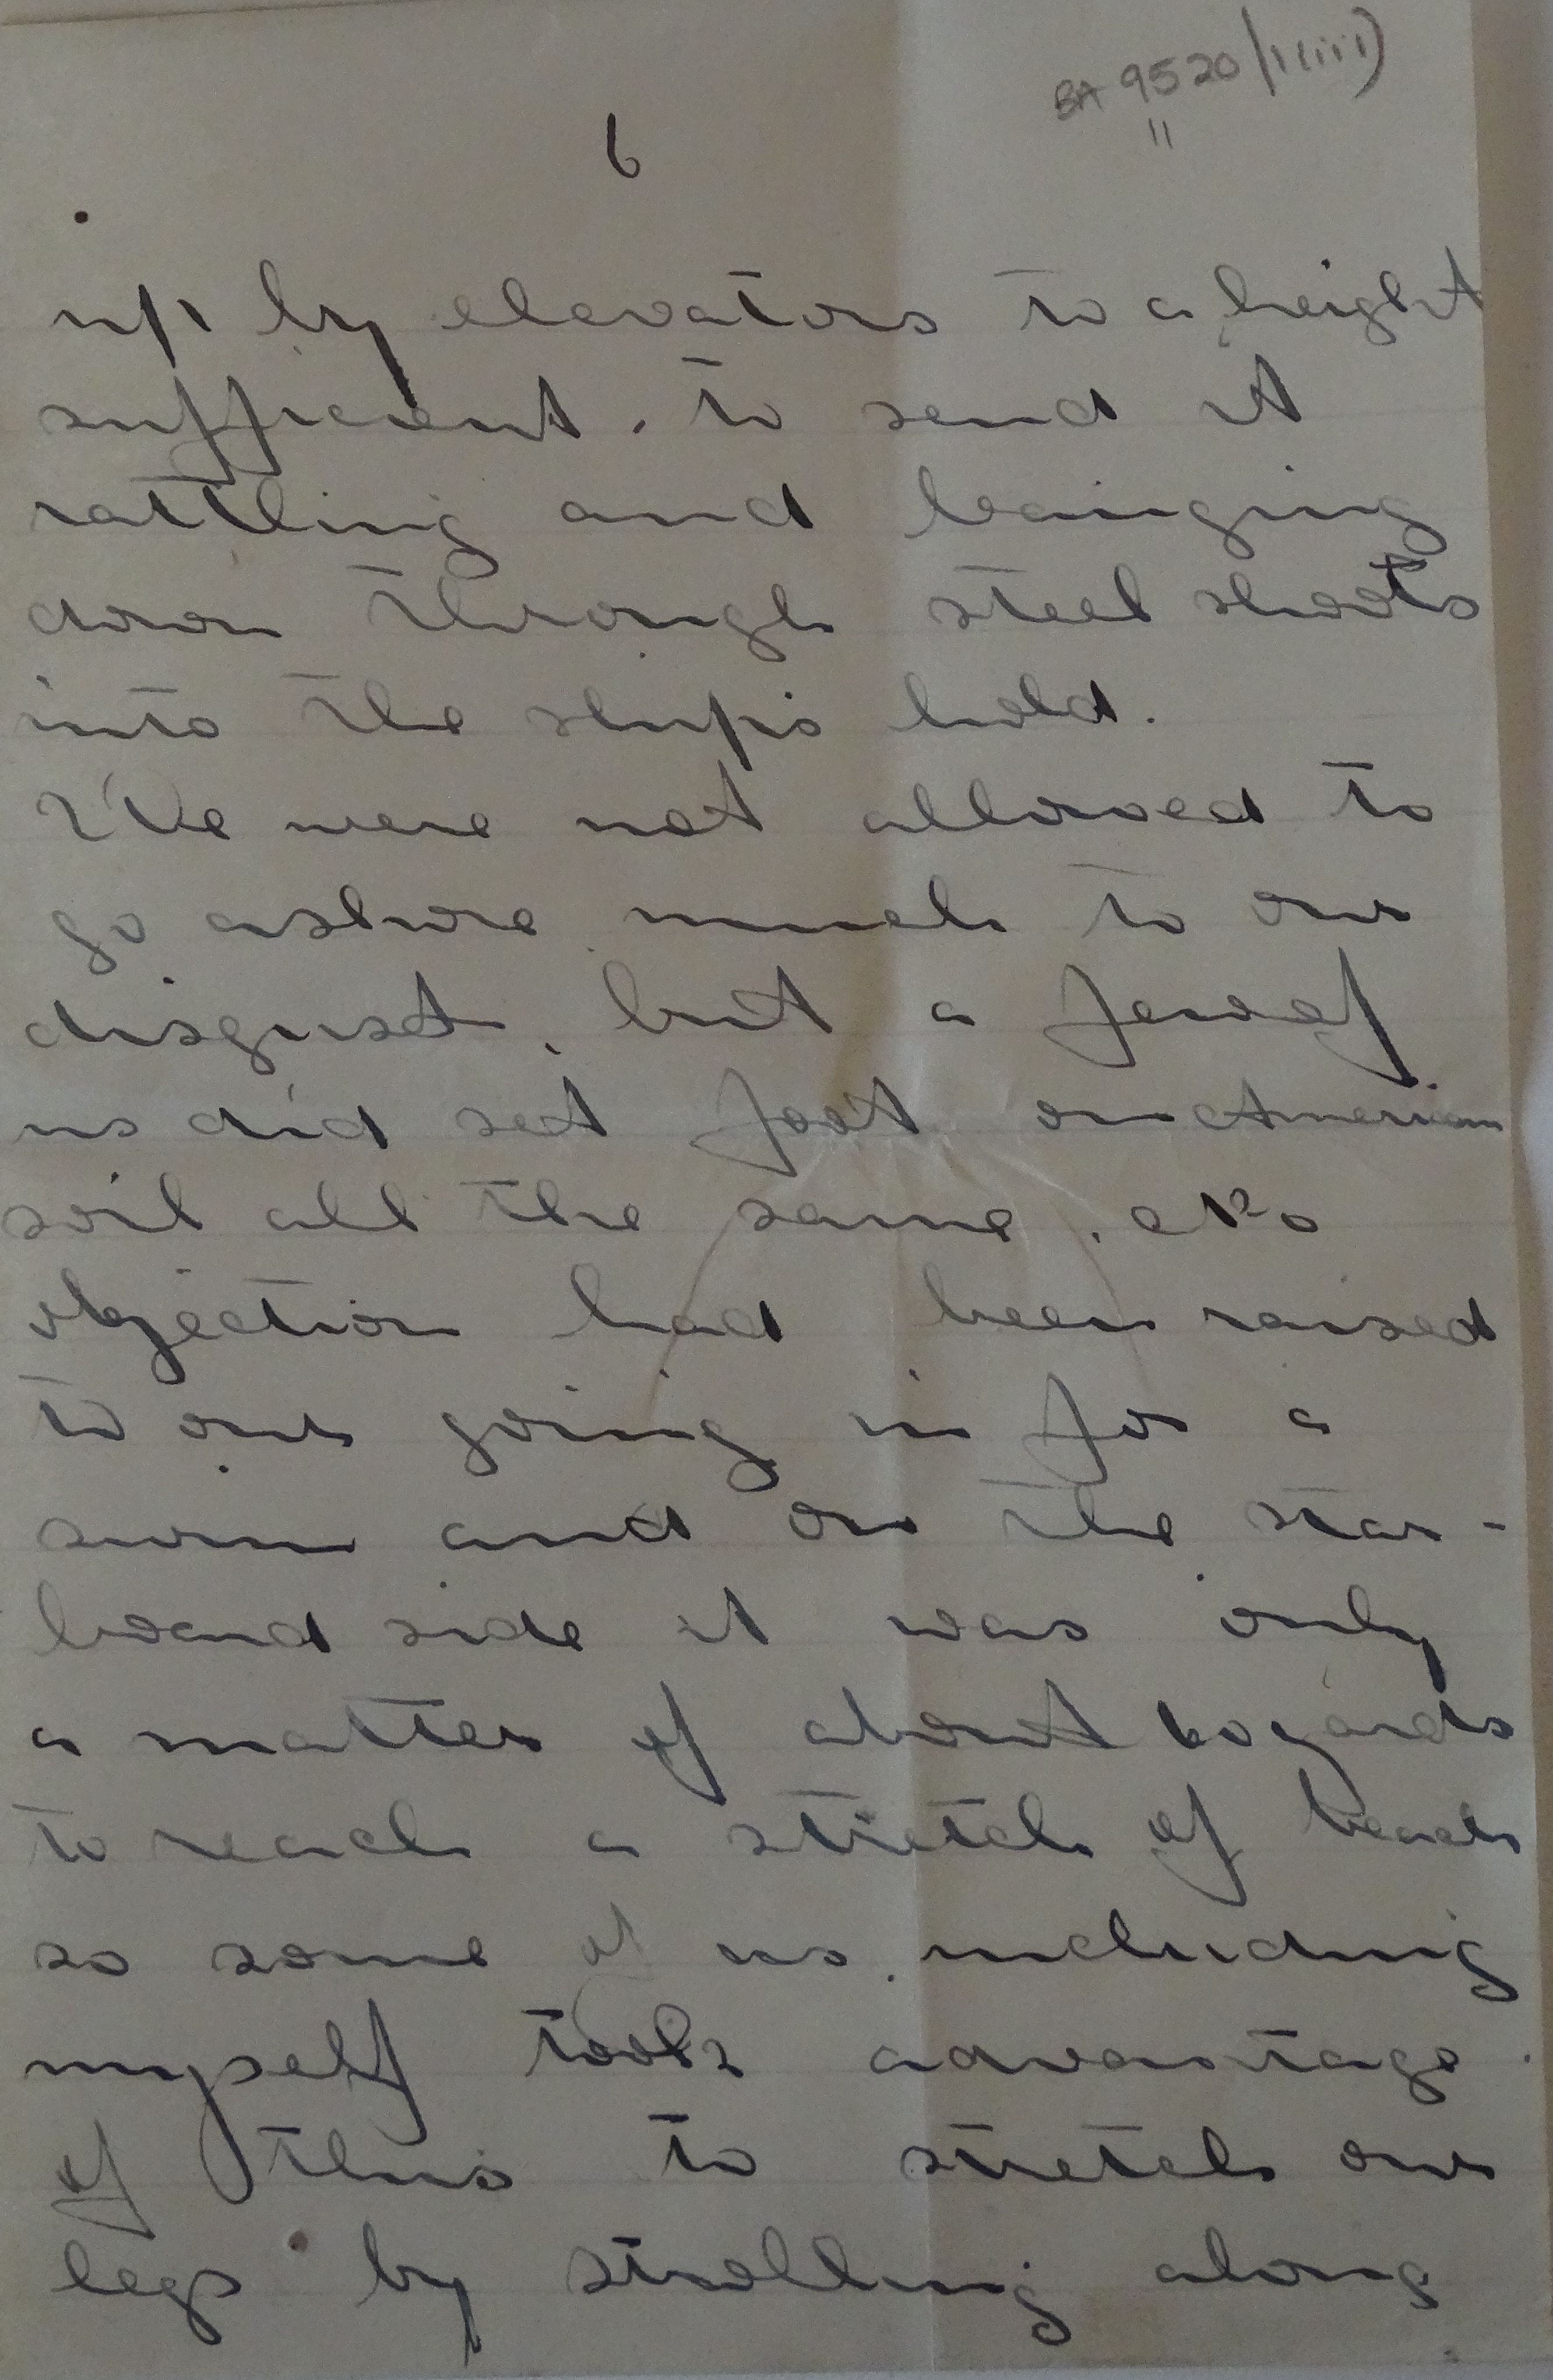 BA 9520/1(iii)
11
6
up by elevators to a height
sufficient, to send it
rattling and banging
down through steel shoots
into the ship's hold.
We were not allowed to
go ashore, much to our
disgust, but a few of
us did set foot on American
soil all the same. No
objection had been raised
to our going in for a
swim and on the star-
board side it was only
a matter of about 60 yards
to reach a stretch of beach
so some of us, including
myself took advantage
of this to stretch our
legs by strolling along